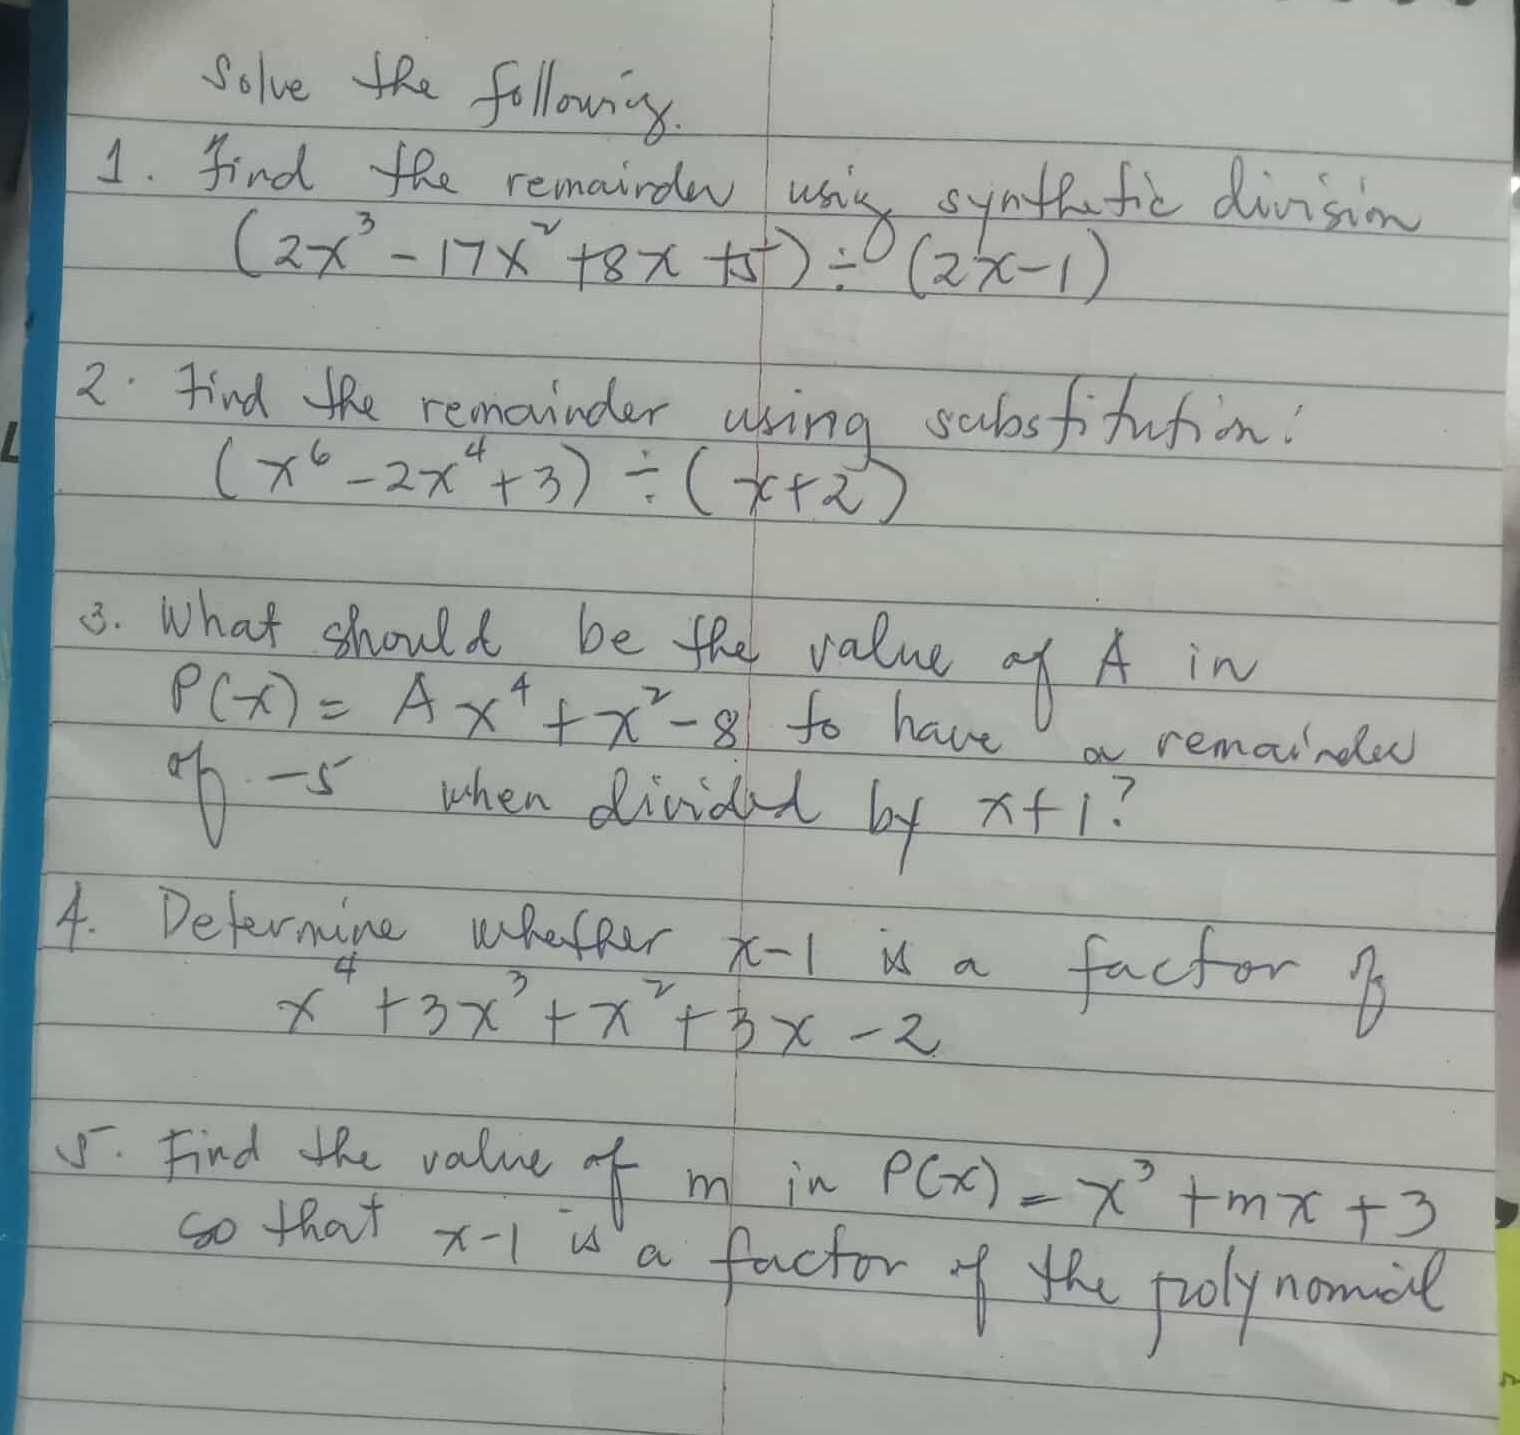 Solve the following.
1. Find the remainder using synthetic division
(2x³ - 17x² + 8x + 5) ÷ (2x-1)
2. Find the remainder using substitution:
(x⁶ - 2x⁴ + 3) ÷ (x+2)
3. What should be the value of A in
P(x) = Ax⁴ + x² - 8 to have a remainder
of -5 when divided by x+1?
4. Determine whether x-1 is a factor of
x⁴ + 3x³ + x² + 3x - 2
5. Find the value of m in P(x) = x³ + mx + 3
so that x-1 is a factor of the polynomial